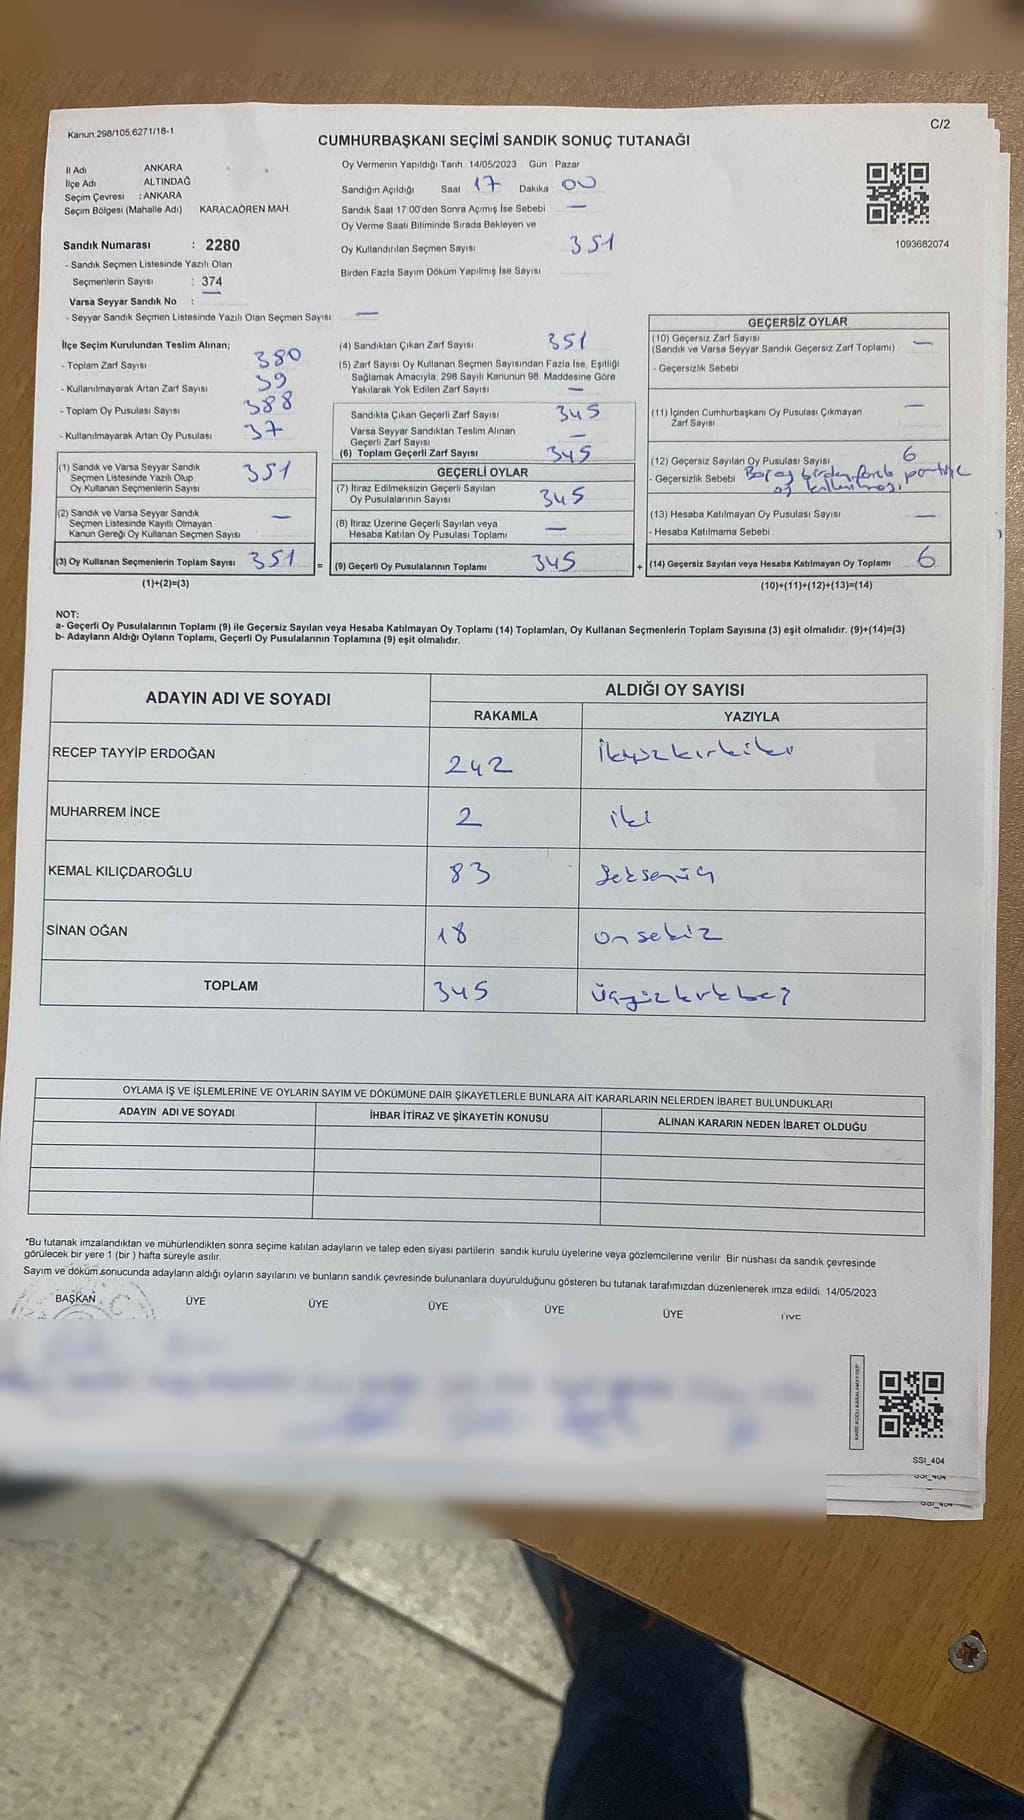 Kanun.298/105.6271/18-1
C/2
CUMHURBAŞKANI SEÇİMİ SANDIK SONUÇ TUTANAĞI
İl Adı : ANKARA
İlçe Adı : ALTINDAĞ
Seçim Çevresi : ANKARA
Seçim Bölgesi (Mahalle Adı) KARACAÖREN MAH.
Sandık Numarası : 2280
- Sandık Seçmen Listesinde Yazılı Olan
Seçmenlerin Sayısı : 374
Varsa Seyyar Sandık No :
- Seyyar Sandık Seçmen Listesinde Yazılı Olan Seçmen Sayısı: —
Oy Vermenin Yapıldığı Tarih 14/05/2023 Gün Pazar
Sandığın Açıldığı Saat 17 Dakika 00
Sandık Saat 17:00'den Sonra Açımış İse Sebebi —
Oy Verme Saati Bitiminde Sırada Bekleyen ve
Oy Kullandırılan Seçmen Sayısı 351
Birden Fazla Sayım Döküm Yapılmış İse Sayısı
1093682074
İlçe Seçim Kurulundan Teslim Alınan;
- Toplam Zarf Sayısı 380
- Kullanılmayarak Artan Zarf Sayısı 39
- Toplam Oy Pusulası Sayısı 388
- Kullanılmayarak Artan Oy Pusulası 37
(1) Sandık ve Varsa Seyyar Sandık
Seçmen Listesinde Yazılı Olup
Oy Kullanan Seçmenlerin Sayısı 351
(2) Sandık ve Varsa Seyyar Sandık
Seçmen Listesinde Kayıtlı Olmayan
Kanun Gereği Oy Kullanan Seçmen Sayısı —
(3) Oy Kullanan Seçmenlerin Toplam Sayısı 351
(1)+(2)=(3)
(4) Sandıktan Çıkan Zarf Sayısı 351
(5) Zarf Sayısı Oy Kullanan Seçmen Sayısından Fazla İse, Eşitliği
Sağlamak Amacıyla, 298 Sayılı Kanunun 98. Maddesine Göre
Yakılarak Yok Edilen Zarf Sayısı —
Sandıkta Çıkan Geçerli Zarf Sayısı 345
Varsa Seyyar Sandıktan Teslim Alınan
Geçerli Zarf Sayısı —
(6) Toplam Geçerli Zarf Sayısı 345
GEÇERLİ OYLAR
(7) İtiraz Edilmeksizin Geçerli Sayılan
Oy Pusulalarının Sayısı 345
(8) İtiraz Üzerine Geçerli Sayılan veya
Hesaba Katılan Oy Pusulası Toplamı —
= (9) Geçerli Oy Pusulalarının Toplamı 345
GEÇERSİZ OYLAR
(10) Geçersiz Zarf Sayısı
(Sandık ve Varsa Seyyar Sandık Geçersiz Zarf Toplamı) —
- Geçersizlik Sebebi
(11) İçinden Cumhurbaşkanı Oy Pusulası Çıkmayan
Zarf Sayısı —
(12) Geçersiz Sayılan Oy Pusulası Sayısı 6
- Geçersizlik Sebebi birden fazla
oy
(13) Hesaba Katılmayan Oy Pusulası Sayısı —
- Hesaba Katılmama Sebebi
+ (14) Geçersiz Sayılan veya Hesaba Katılmayan Oy Toplamı 6
(10)+(11)+(12)+(13)=(14)
NOT:
a- Geçerli Oy Pusulalarının Toplamı (9) ile Geçersiz Sayılan veya Hesaba Katılmayan Oy Toplamı (14) Toplamları, Oy Kullanan Seçmenlerin Toplam Sayısına (3) eşit olmalıdır. (9)+(14)=(3)
b- Adayların Aldığı Oyların Toplamı, Geçerli Oy Pusulalarının Toplamına (9) eşit olmalıdır.
ADAYIN ADI VE SOYADI ALDIĞI OY SAYISI
RAKAMLA YAZIYLA
RECEP TAYYİP ERDOĞAN 242 İkiyüzkırkiki
MUHARREM İNCE 2 iki
KEMAL KILIÇDAROĞLU 83 Seksenüç
SİNAN OĞAN 18 onsekiz
TOPLAM 345 Üçyüzkırkbeş
OYLAMA İŞ VE İŞLEMLERİNE VE OYLARIN SAYIM VE DÖKÜMÜNE DAİR ŞİKAYETLERLE BUNLARA AİT KARARLARIN NELERDEN İBARET BULUNDUKLARI
ADAYIN ADI VE SOYADI İHBAR İTİRAZ VE ŞİKAYETİN KONUSU ALINAN KARARIN NEDEN İBARET OLDUĞU
*Bu tutanak imzalandıktan ve mühürlendikten sonra seçime katılan adayların ve talep eden siyasi partilerin sandık kurulu üyelerine veya gözlemcilerine verilir. Bir nüshası da sandık çevresinde
görülecek bir yere 1 (bir ) hafta süreyle asılır.
Sayım ve döküm sonucunda adayların aldığı oyların sayılarını ve bunların sandık çevresinde bulunanlara duyurulduğunu gösteren bu tutanak tarafımızdan düzenlenerek imza edildi. 14/05/2023
BAŞKAN ÜYE ÜYE ÜYE ÜYE ÜYE ÜYE
SSI_404
SSI_404
SSI_404